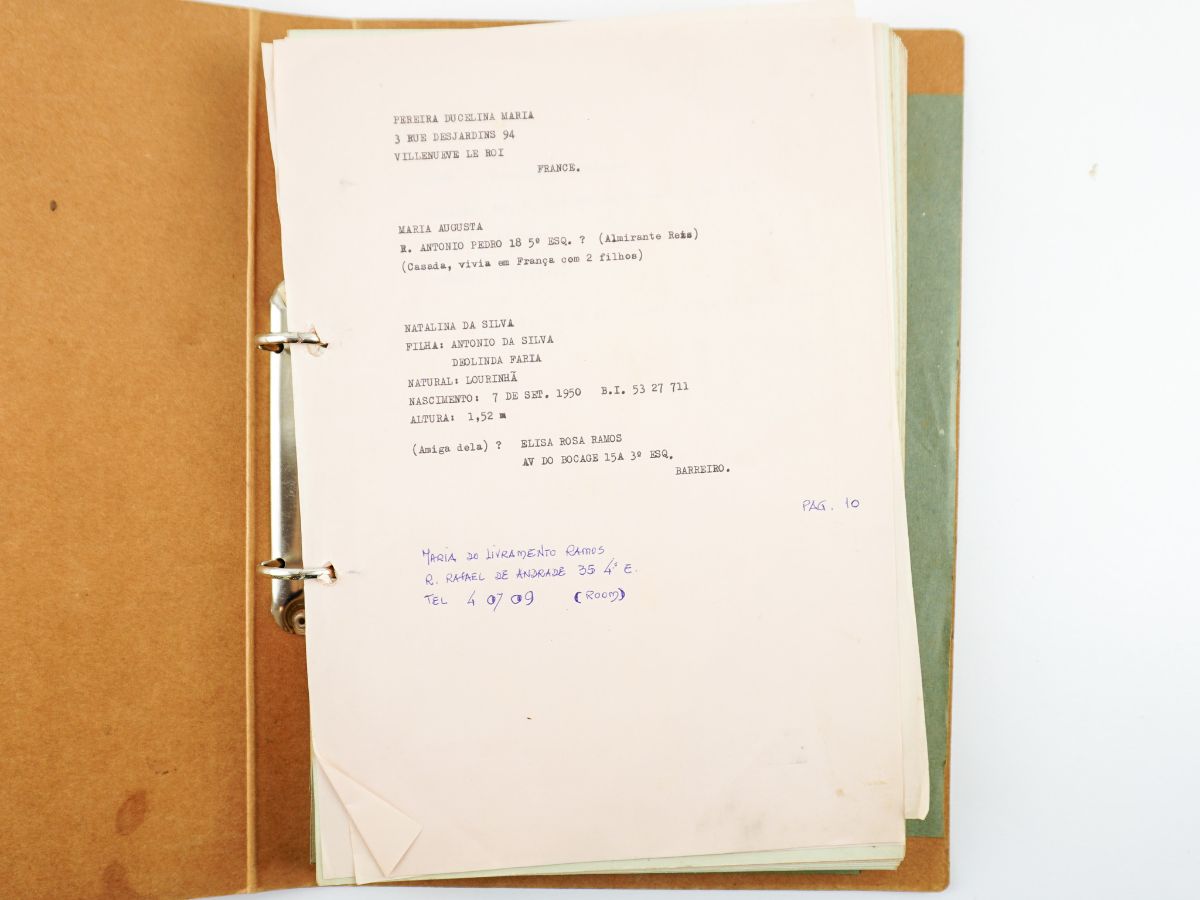 PEREIRA DUCELINA MARIA
3 RUE DESJARDINS 94
VILLENUEVE LE ROI
FRANCE.
MARIA AUGUSTA
R. ANTONIO PEDRO 18 5º ESQ. ? (Almirante Reis)
(Casada, vivia em França com 2 filhos)
NATALINA DA SILVA
FILHA: ANTONIO DA SILVA
DEOLINDA FARIA
NATURAL: LOURINHÃ
NASCIMENTO: 7 DE SET. 1950 B.I. 53 27 711
ALTURA: 1,52 m
(Amiga dela) ? ELISA ROSA RAMOS
AV DO BOCAGE 15A 3º ESQ.
BARREIRO.
PÁG. 10
MARIA DO LIVRAMENTO RAMOS
R. RAFAEL DE ANDRADE 35 4º E.
TEL 4 07 09 (ROOM)